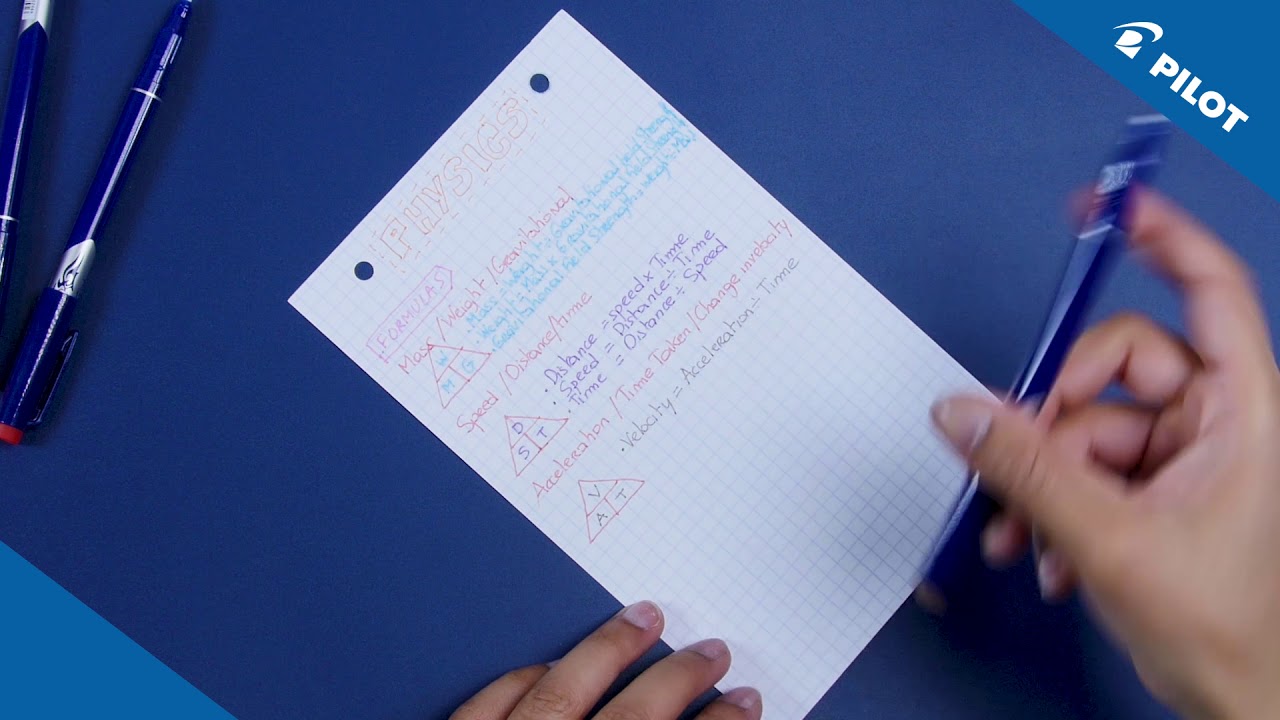 PILOT
PHYSICS
FORMULAS
Mass / Weight / Gravitational
W
M G
. Mass = Weight ÷ Gravitational Field Strength
. Weight = Mass x Gravitational Field Strength
. Gravitational Field Strength = Weight ÷ Mass
Speed / Distance/time
D
S T
. Distance = speed x Time
. Speed = Distance ÷ Time
. Time = Distance ÷ Speed
Acceleration / Time Taken / Change in velocity
V
A T
. Velocity = Acceleration ÷ Time